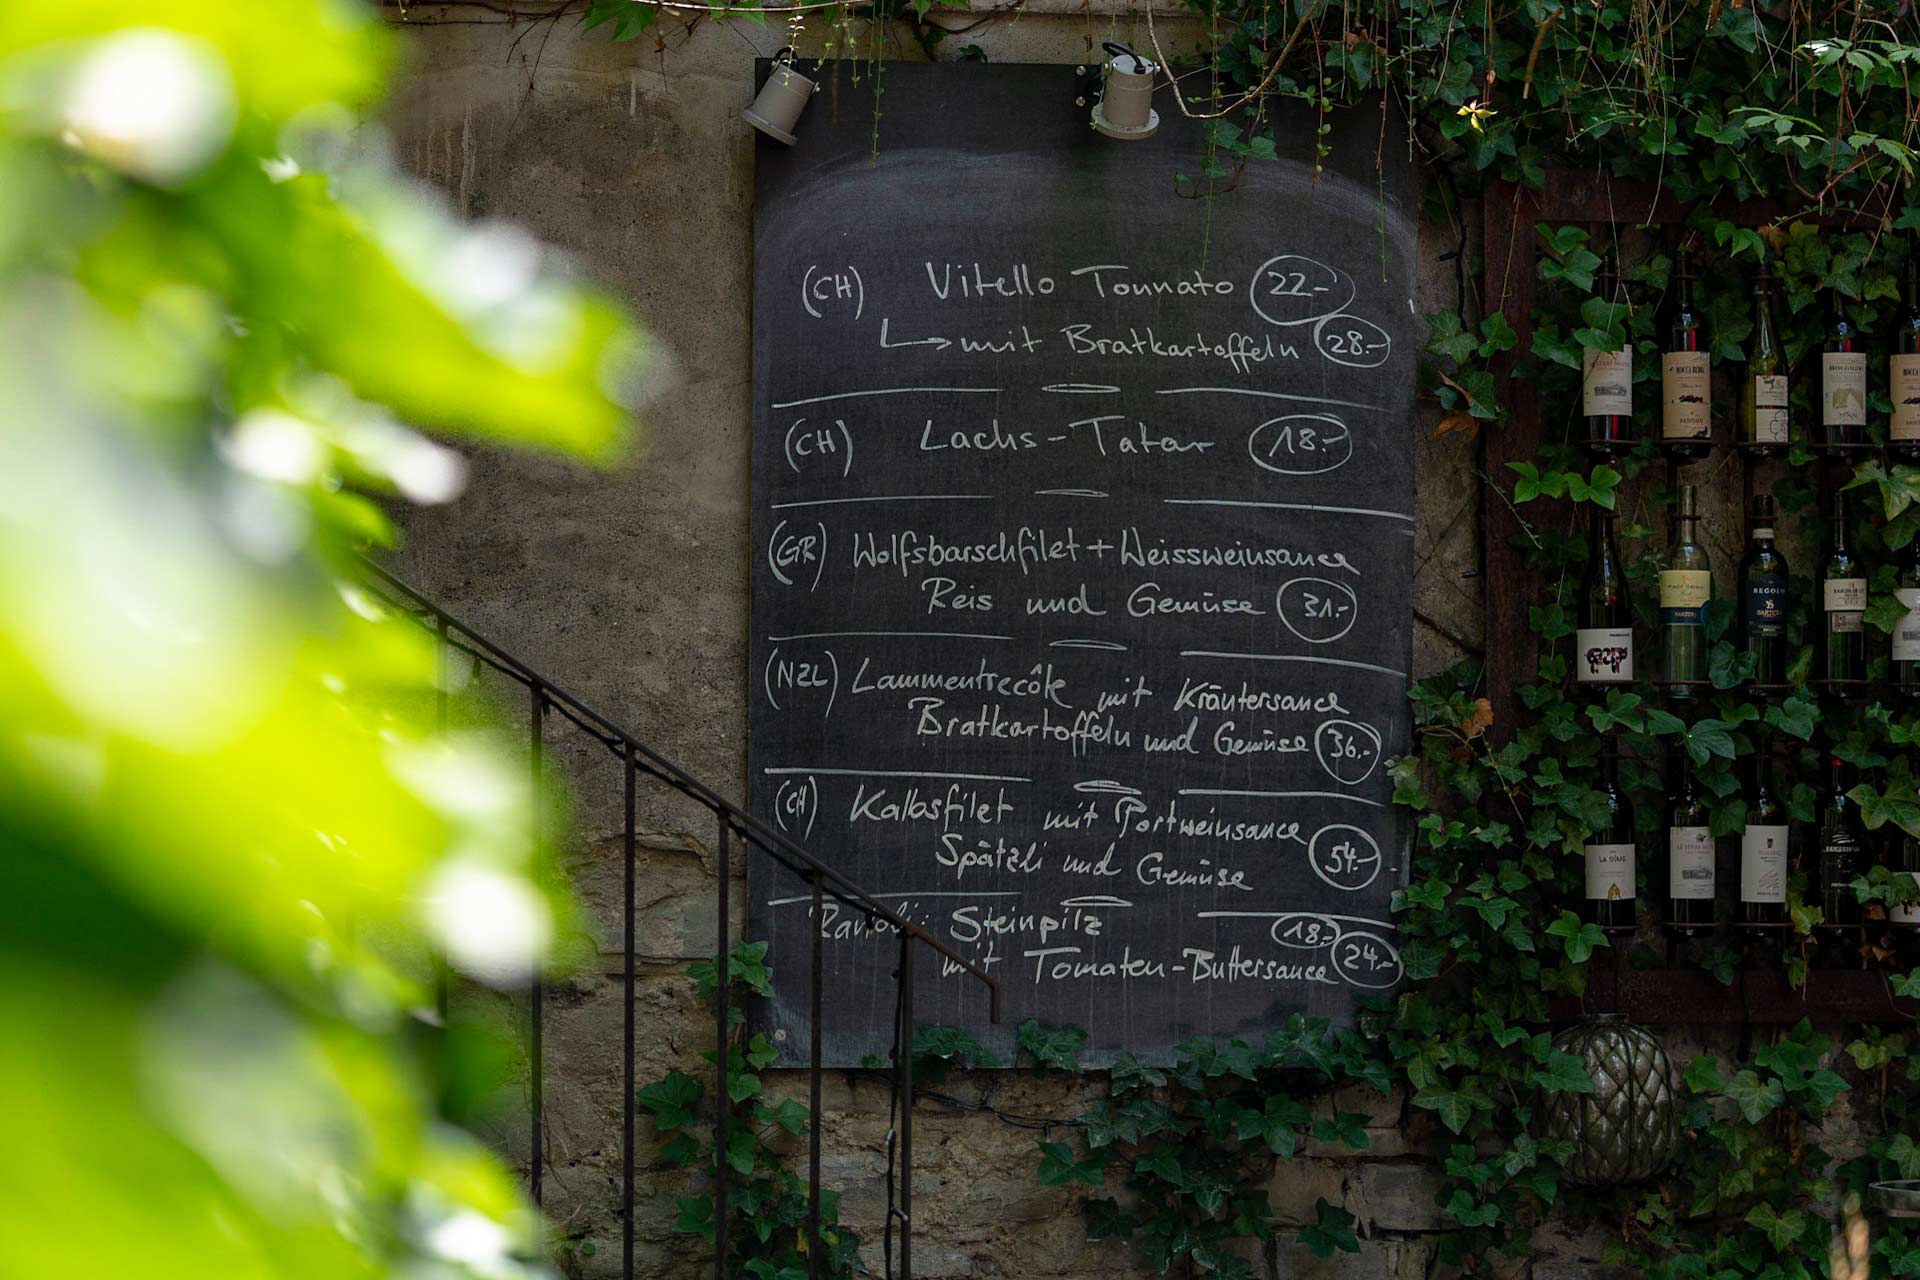 (CH) Vitello Tonnato 22.-
mit Bratkartoffeln 28.-
(CH) Lachs-Tatar 18.-
(GR) Wolfsbarschfilet + Weissweinsauce
Reis und Gemüse 31.-
(NZL) Lammentrecôte mit Kräutersauce
Bratkartoffeln und Gemüse 36.-
(CH) Kalbsfilet mit Portweinsauce
Spätzli und Gemüse 54.-
Ravioli: Steinpilz 18.-
mit Tomaten-Buttersauce 24.-
ROCCA RUBIA
REGOLO
SARTORI
LA DÎME